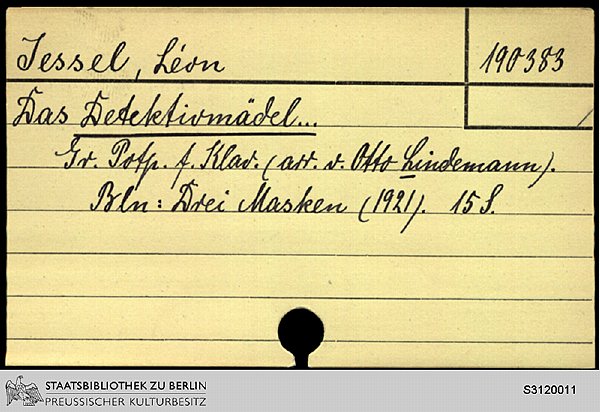 Jessel, Léon
190383
Das Detektivmädel...
Gr. Potp. f. Klav. (arr. v. Otto Lindemann).
Bln: Drei Masken (1921). 15 S.
STAATSBIBLIOTHEK ZU BERLIN
PREUSSISCHER KULTURBESITZ
S3120011